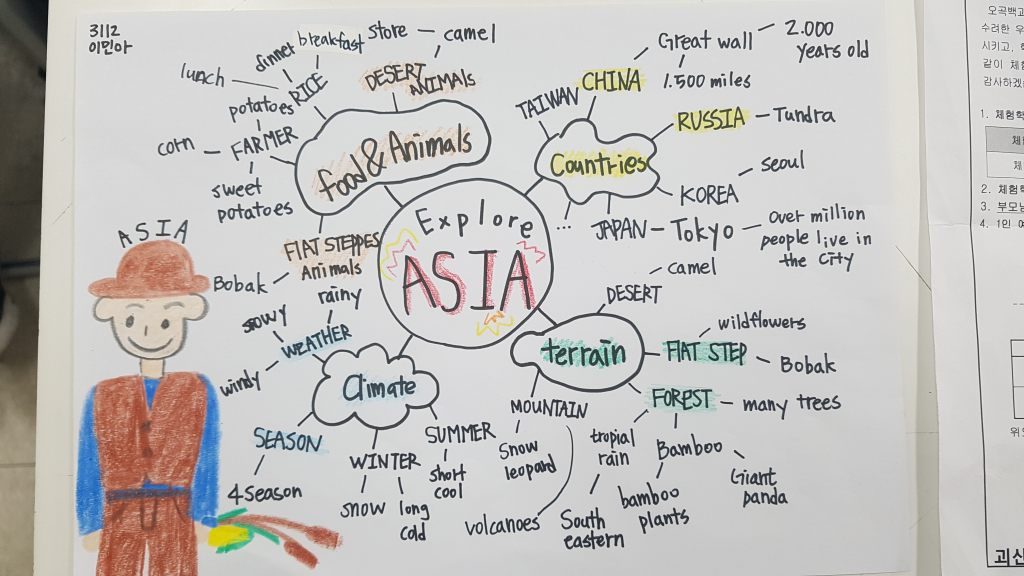 3112
이민아
Explore
ASIA
food & Animals
RICE
lunch
dinner
breakfast
DESERT
ANIMALS
store
camel
FARMER
potatoes
corn
sweet
potatoes
FlAT STEPPES
Animals
Bobak
Countries
TAIWAN
CHINA
Great wall
2.000
years old
1.500 miles
RUSSIA
Tundra
KOREA
seoul
JAPAN
Tokyo
Over million
people live in
the City
...
terrain
DESERT
camel
FlAT STEP
wildflowers
Bobak
FOREST
many trees
tropial
rain
South
eastern
Bamboo
bamboo
plants
Giant
panda
MOUNTAIN
Snow
leopard
volcanoes
Climate
WEATHER
rainy
snowy
windy
SEASON
4 Season
WINTER
snow
long
cold
SUMMER
short
cool
ASIA
오곡백과
수려한 우
시키고,
같이 체험
감사하겠
1. 체험학
체험
체
2. 체험학
3. 부모님
4. 1인
위
괴산